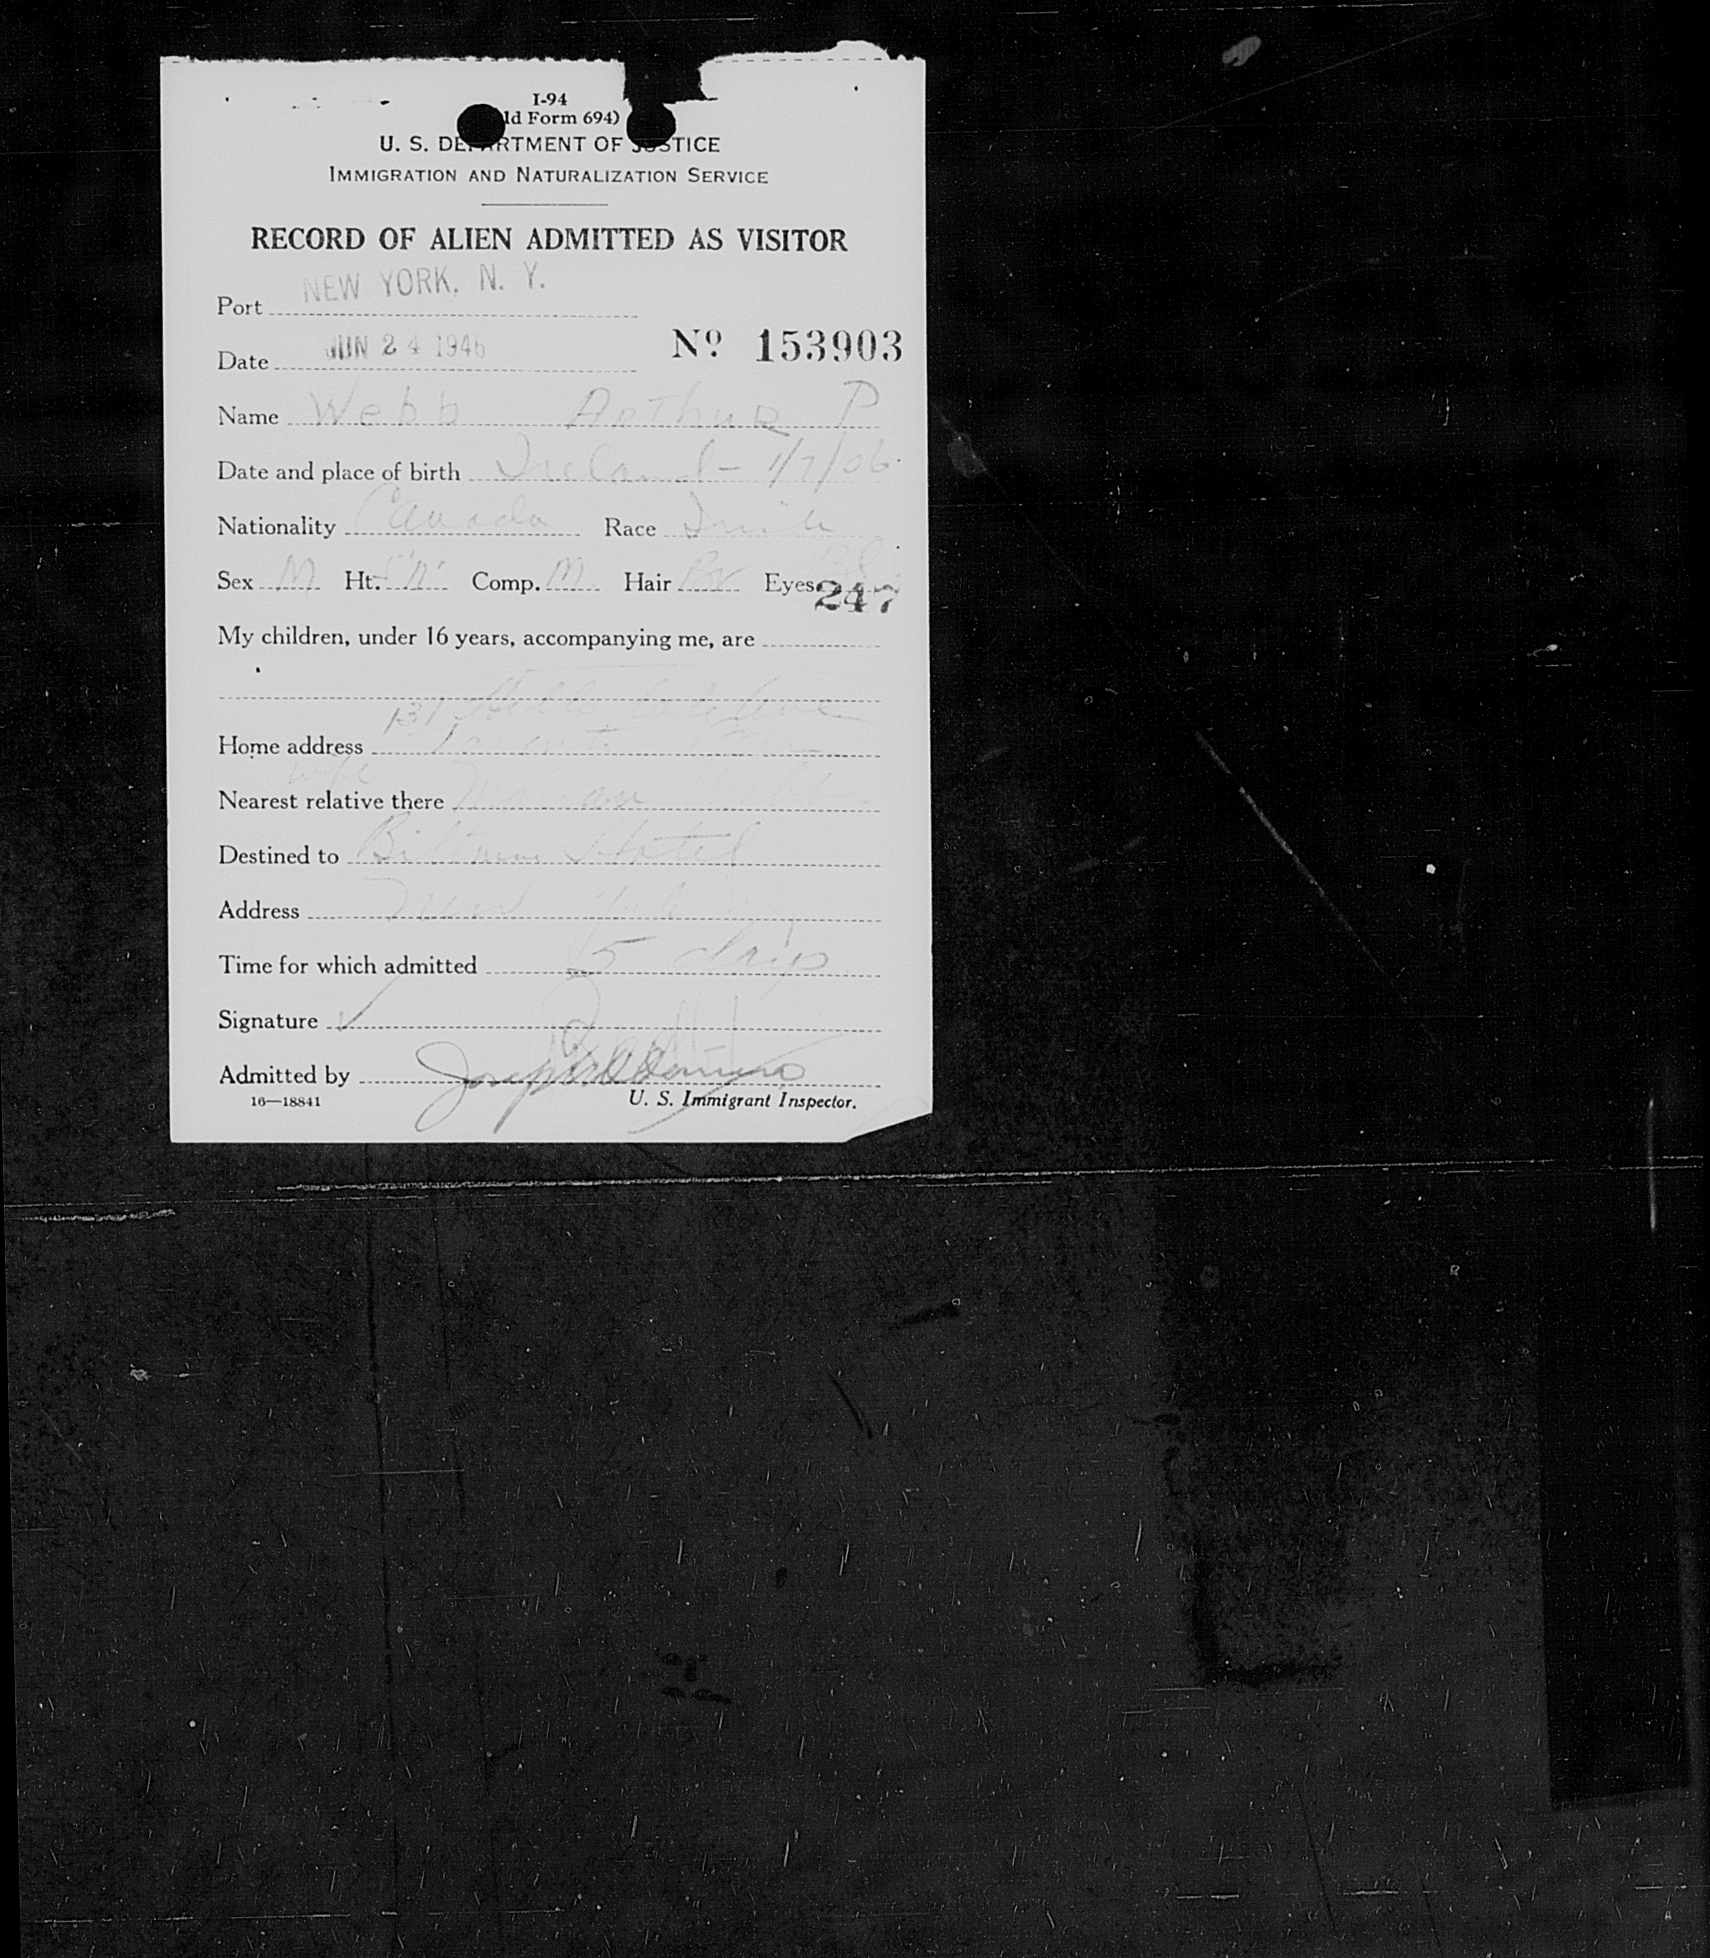 I-94
ld Form 694)
U. S. DEPARTMENT OF JUSTICE
IMMIGRATION AND NATURALIZATION SERVICE
RECORD OF ALIEN ADMITTED AS VISITOR
Port NEW YORK, N. Y.
Date JUN 24 1946 No 153903
Name Webb Arthur P
Date and place of birth Ireland - 1/7/06
Nationality Canada Race Irish
Sex M Ht. Comp. M Hair Br Eyes
247
My children, under 16 years, accompanying me, are
131
Home address Toronto
wife
Nearest relative there
Destined to Biltmore Hotel
Address New York
Time for which admitted 5 days
Signature
Admitted by Joseph
16—18841 U. S. Immigrant Inspector.